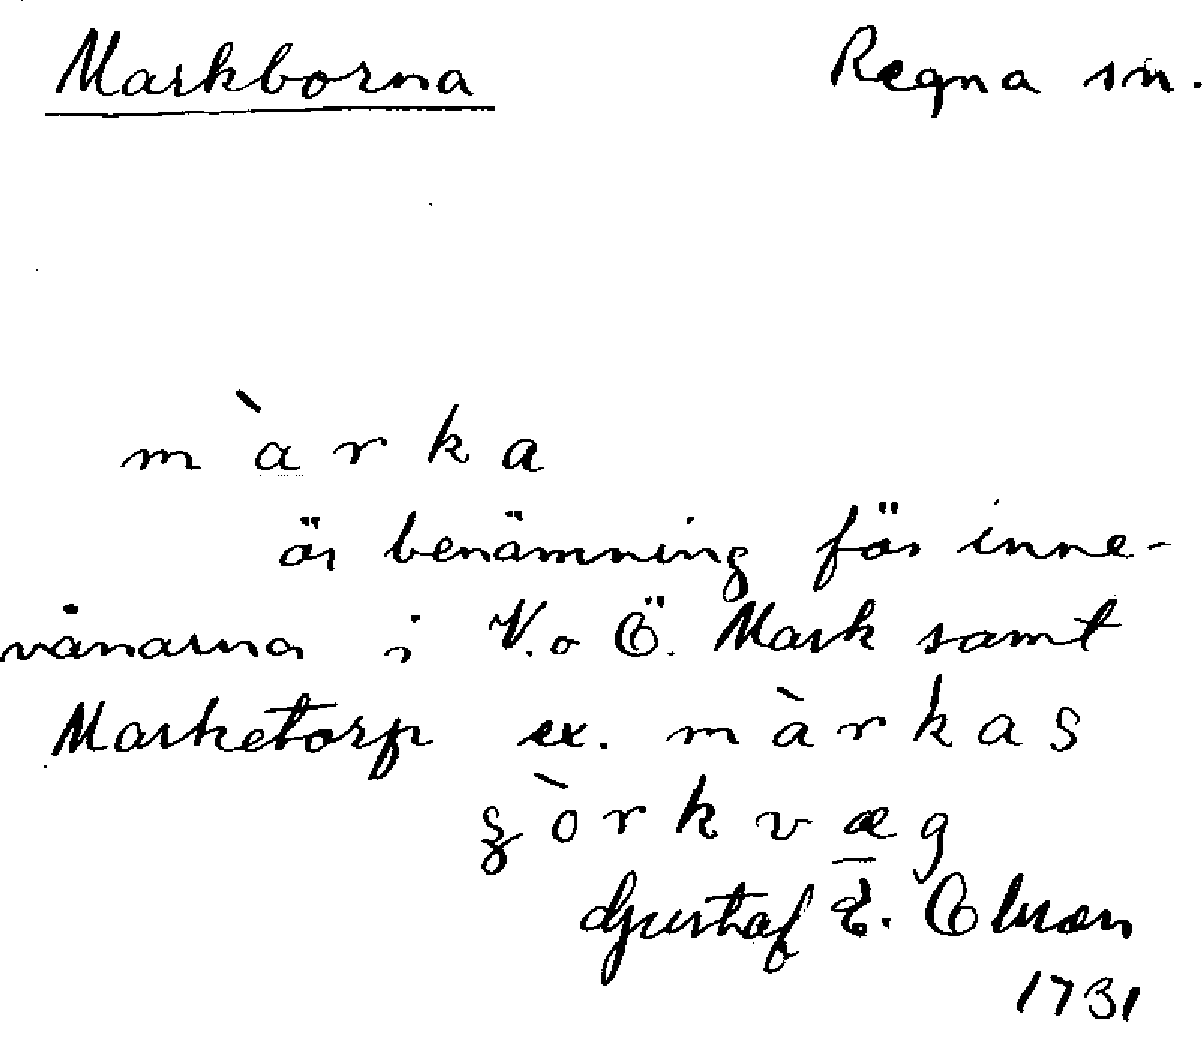 Markborna Regna sn.
màrka
är benämning för inne-
vånarna i V. o Ö. Mark samt
Marketorp ex. màrkas
çòrkvæg
Gustaf E. Olsson
1731